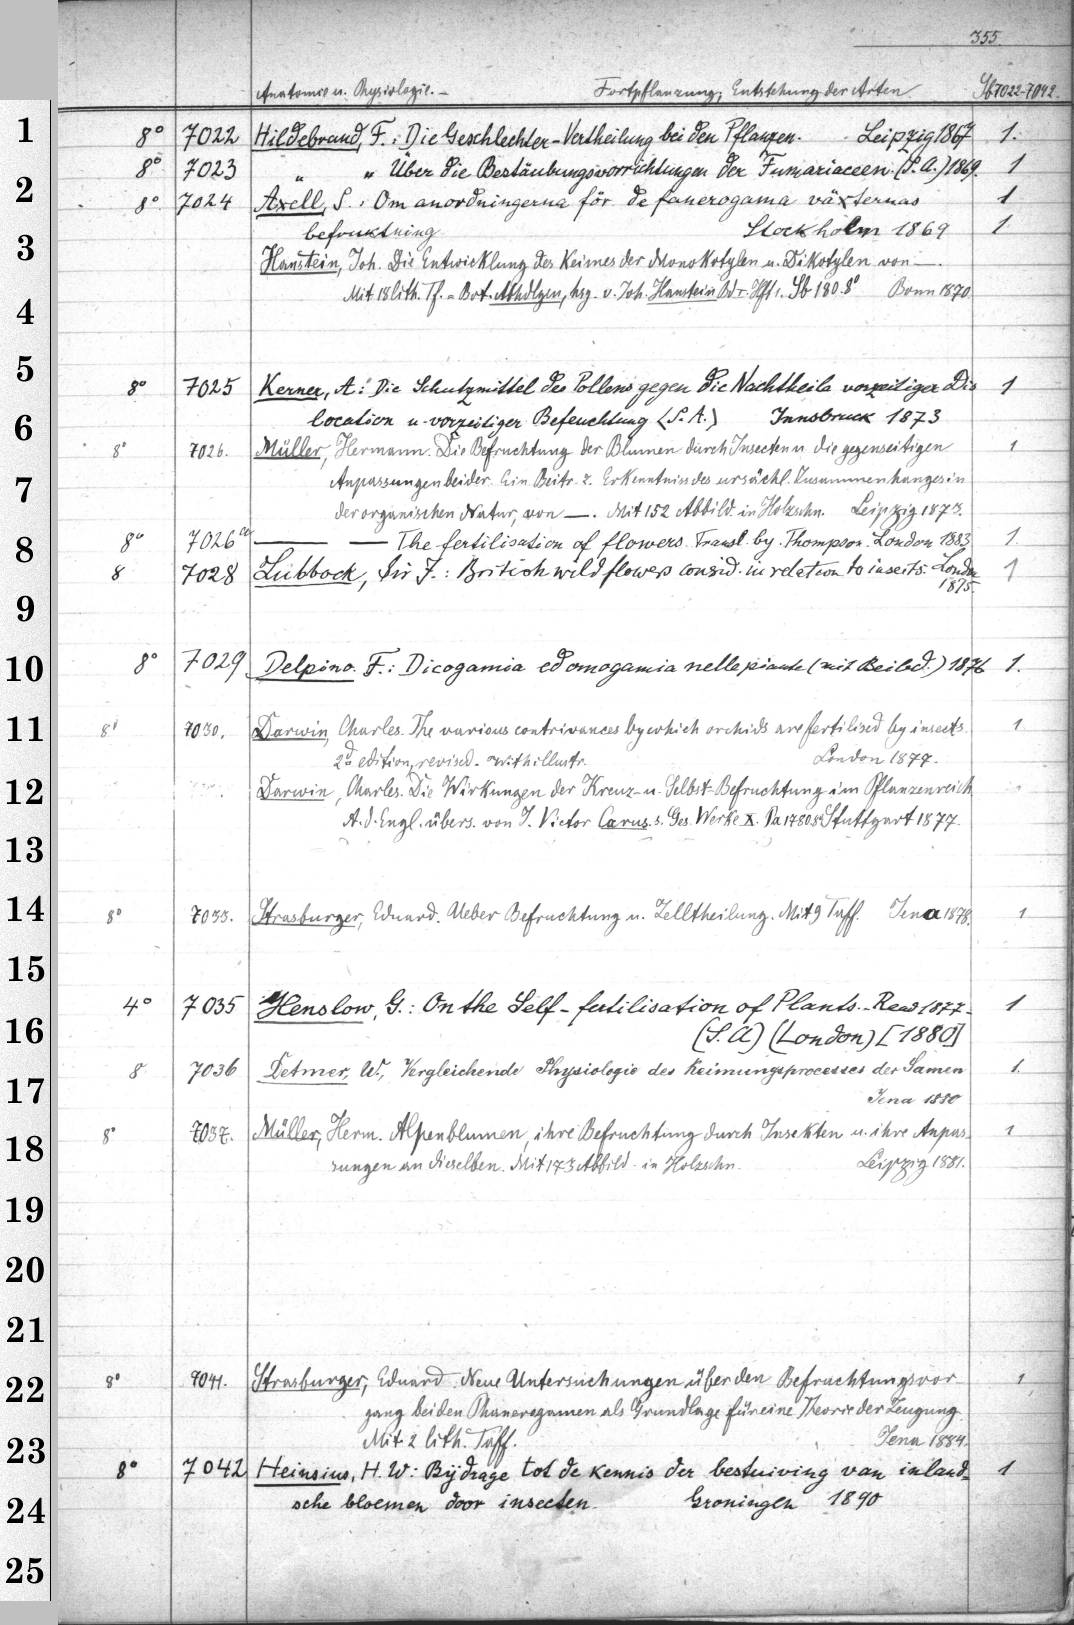 355.
Anatomie u. Physiologie. – Fortpflanzung, Entstehung der Arten. Sb 7022-7042.
1 8° 7022 Hildebrand, F.: Die Geschlechter-Vertheilung bei den Pflanzen. Leipzig 1867 1.
8° 7023 " " Über die Bestäubungsvorrichtungen der Fumariaceen. (S.A.) 1869. 1
2 8° 7024 Axell, S.: Om anordningerna för de fanerogama växternas 1
3 befruktning Stockholm 1869 1
Hanstein, Joh. Die Entwicklung des Keimes der Monokotylen u. Dikotylen von —.
4 Mit 18 lith. Tf. = Bot. Abhdlgen, hsg. v. Joh. Hanstein Bd I. Hft 1. Sb 180.8° Bonn 1870.
5 8° 7025 Kerner, A.: Die Schutzmittel des Pollens gegen die Nachtheile vorzeitiger Dis 1
6 location u. vorzeitiger Befeuchtung (S.A.) Innsbruck 1873
8° 7026. Müller, Hermann. Die Befruchtung der Blumen durch Insecten u. die gegenseitigen 1
7 Anpassungen beider. Ein Beitr. z. Erkenntniss des ursächl. Zusammenhanges in
der organischen Natur, von —. Mit 152 Abbild. in Holzschn. Leipzig 1873.
8 8° 7026 ca — — The fertilisation of flowers. Transl. by. Thompson. London 1883 1
8 7028 Lubbock, Sir J.: British wild flowers consid. in relation to insects. London 1
9 1875.
10 8° 7029 Delpino. F.: Dicogamia ed omogamia nelle piante (mit Beibd.) 1876 1.
11 8° 7030. Darwin, Charles. The various contrivances by which orchids are fertilised by insects. 1
2d edition, revised. – With illustr. London 1877.
12 Darwin, Charles. Die Wirkungen der Kreuz- u. Selbst-Befruchtung im Pflanzenreich
A. d. Engl. übers. von J. Victor Carus. s. Ges. Werke X. Pa 1780.8° Stuttgart 1877.
13
14 8° 7033. Strasburger, Eduard. Ueber Befruchtung u. Zelltheilung. Mit 9 Taff. Jena 1878. 1
15
4° 7035 Henslow, G.: On the Self-fertilisation of Plants. – Read 1877 – 1
16 (S.A) (London) [1880]
8 7036 Detmer, W., Vergleichende Physiologie des Keimungsprocesses der Samen 1.
17 Jena 1880
18 8° 7037. Müller, Herm. Alpenblumen, ihre Befruchtung durch Insekten u. ihre Anpas- 1
sungen an dieselben. Mit 173 Abbild. in Holzschn. Leipzig 1881.
19
20
21
22 8° 7041. Strasburger, Eduard. Neue Untersuchungen über den Befruchtungsvor- 1
gang bei den Phanerogamen als Grundlage für eine Theorie der Zeugung.
23 Mit 2 lith. Taff. Jena 1884.
8° 7042 Heinsius, H. W: Bijdrage tot de kennis der bestuiving van inland- 1
24 sche bloemen door insecten. Groningen 1890
25